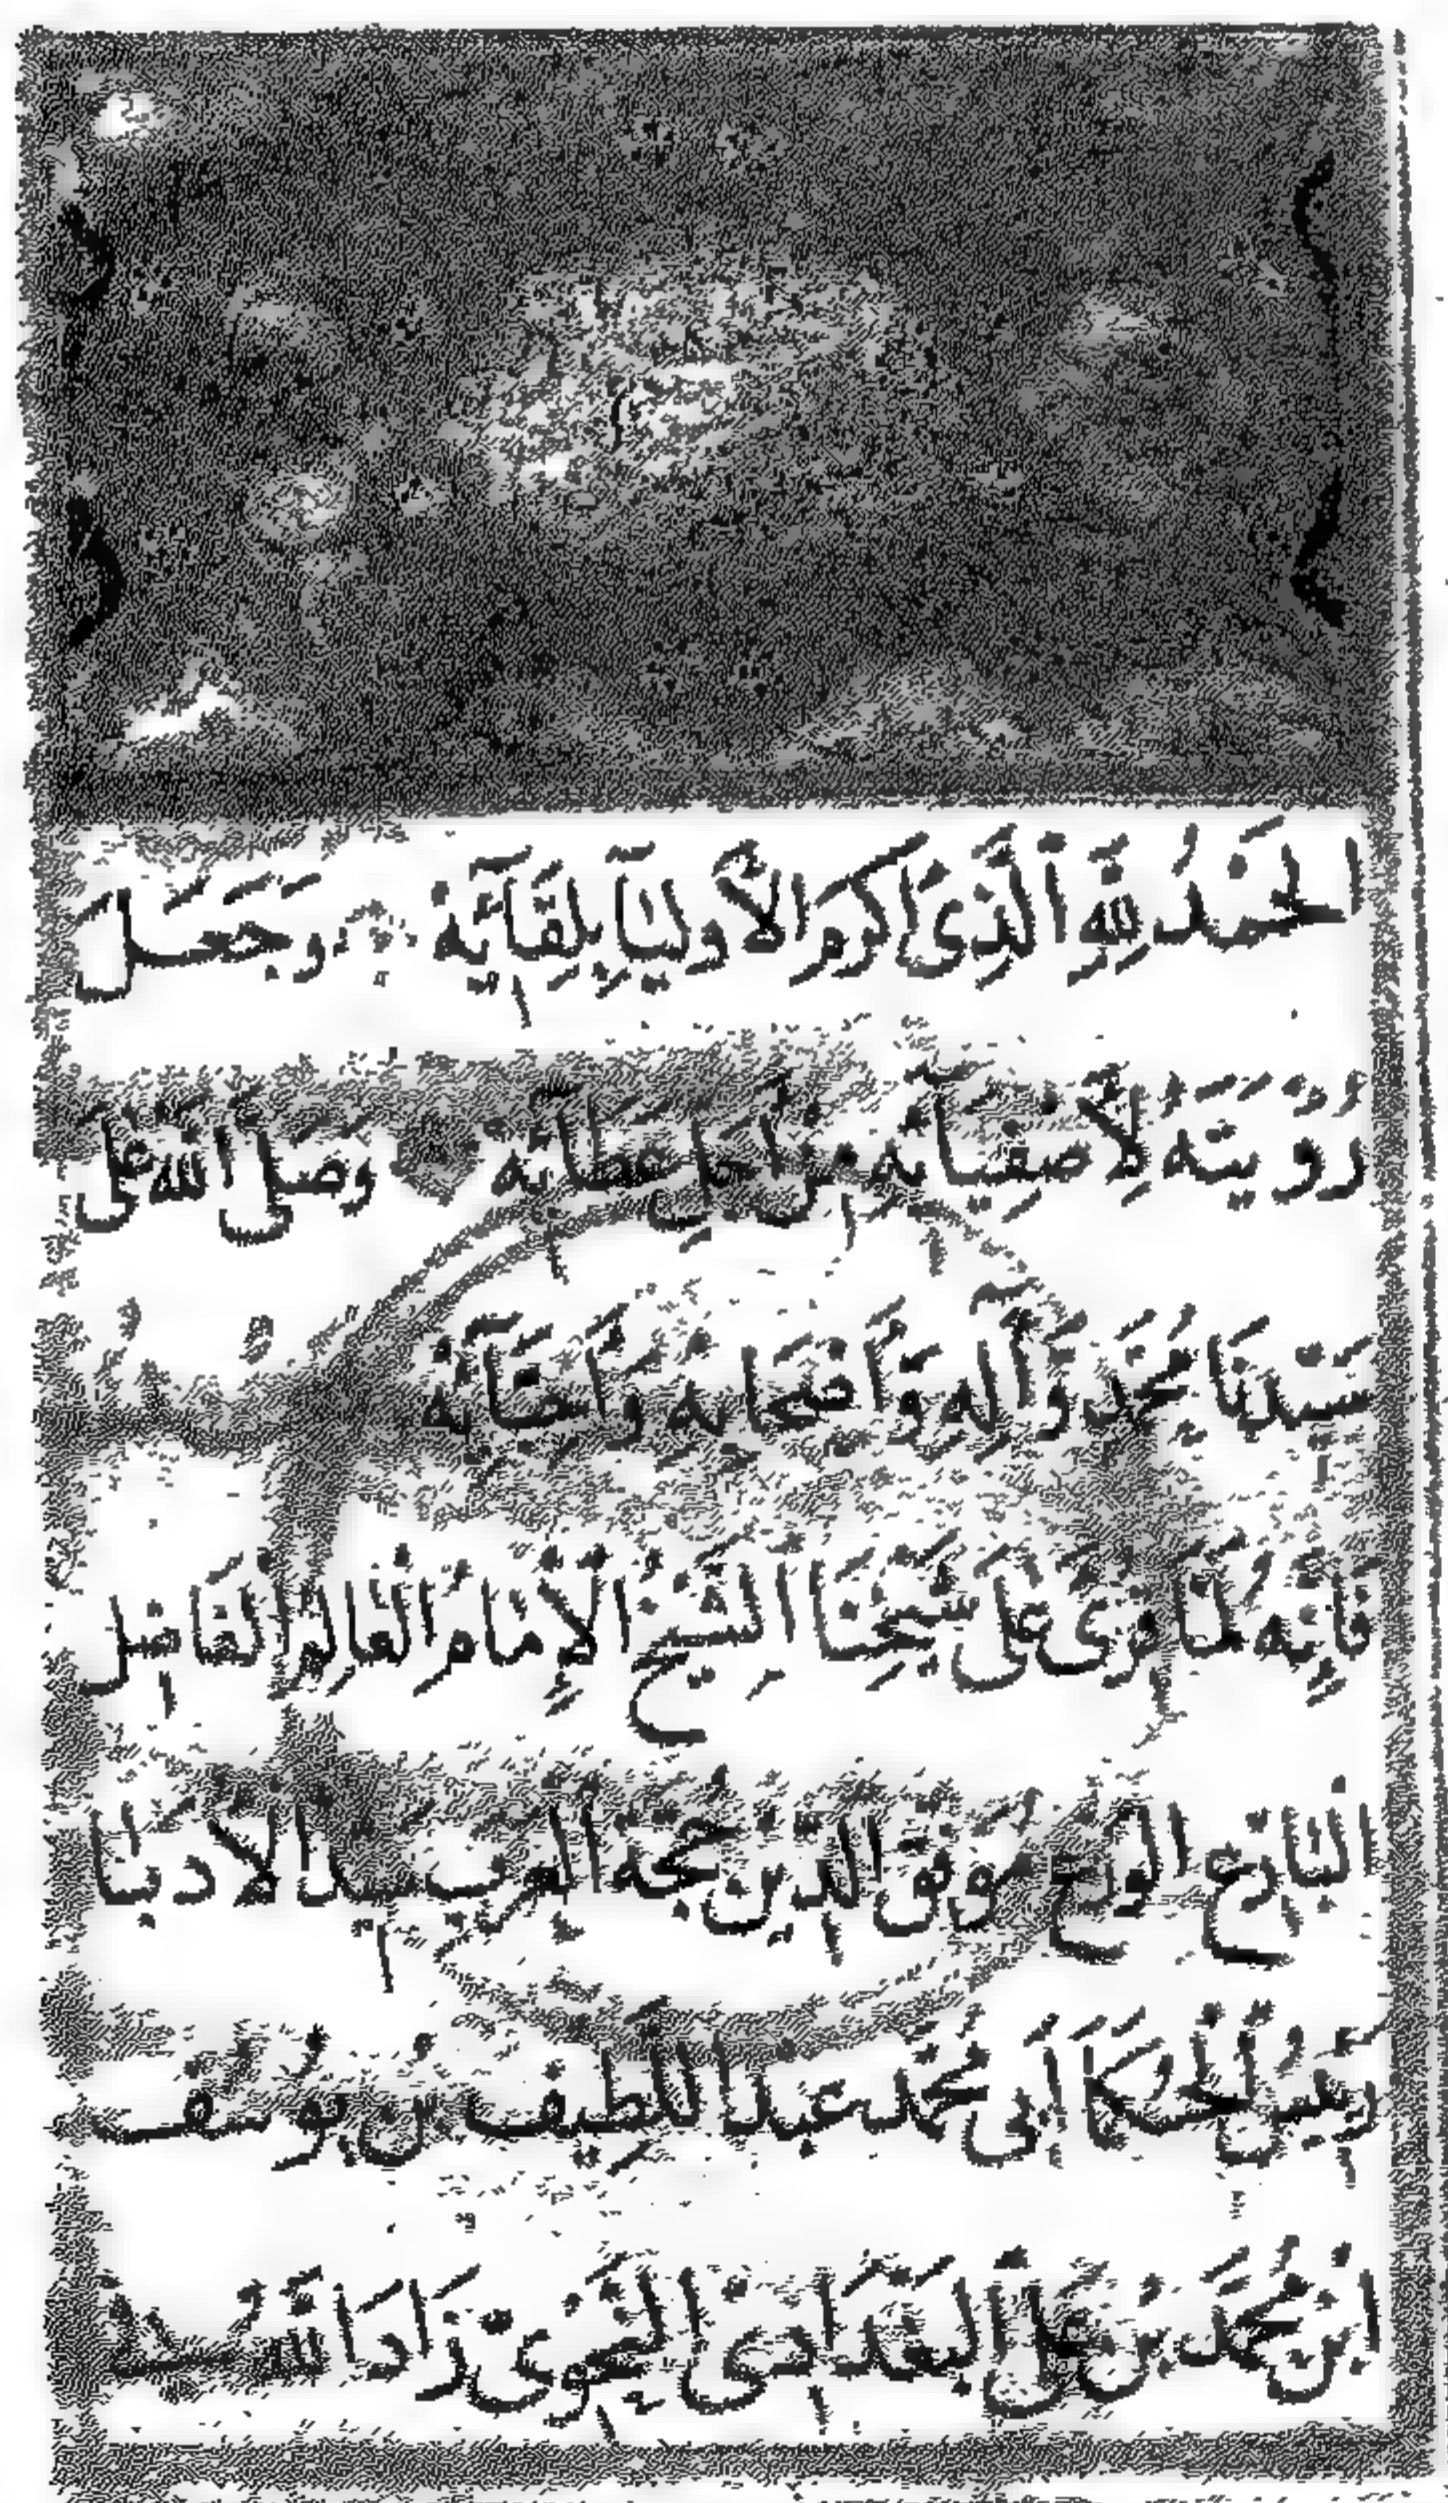 الحَمْدُ لِلَّهِ الَّذِى اَكرَمَ الأَوليَآ بِلِقَآيِهِ وَجَعَلَ
رُوْيَتَهُ لِأَصْفِيَآيِهِ مِنْ اَجَلِّ عَطَآيِهِ وَصَلَى اَلله عَلَى
سَيّدِنَا مُحَمَّدٍ وَآلِهِ وَأَصْحَابِهِ وَ
فَاِنَّهُ لَمَّا قُرِىَ عَلَى شَيْخِنَا الشَّيْخِ الإِمَامِ الْعَالِمِ الْفَاضِل
الْبَارِعِ الوَرِعِ مُوَفقِ الدّينِ حُجَّةِ العَرَبِ سَيِّدِ الأُدَبَا
رَئيسِ الْحُكَمَآ أَبى مُحَمَّد عَبْد اللَّطِيفِ بْنِ يُوسُفَ
ابْنِ مُحَمَّدِ بْنِ عَلِىّ البَغْدَادِىّ النَّحْوِىّ زَادَ اَللهُ